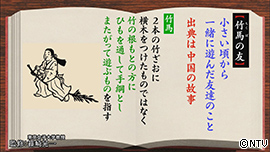 【竹馬の友】
小さい頃から
一緒に遊んだ友達のこと
出典は中国の故事
竹馬
2本の竹ざおに
横木をつけたものではなく
竹の根もとの方に
ひもを通して手綱とし
またがって遊ぶものを指す
©NTV